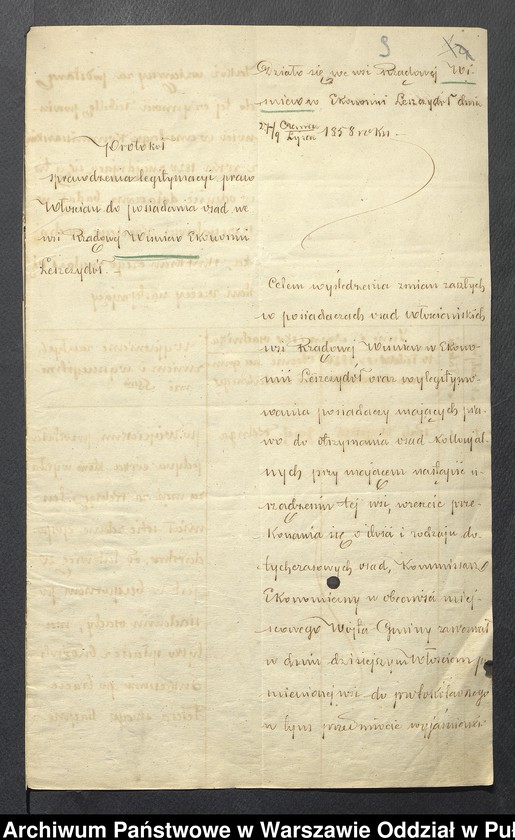 9
Działo się we wsi Rządowej Wi-
śniew w Ekonomii Leszczydół dnia
27/9 Czerwca/Lipca 1858 roku
Protokół
sprawdzenia legitymacyi praw
Włościan do posiadania osad we
wsi Rządowej Wiśniew Ekonomii
Leszczydół.
Celem wyśledzenia zmian zaszłych
w posiadaczach osad włościańskich
wsi Rządowej Wiśniew w Ekono-
mii Leszczydół oraz wylegitymo-
wania posiadaczy mających pra-
wo do otrzymania osad kollonjal-
nych przy mającem nastąpić u-
rządzeniu tej wsi, wreszcie prze-
konania się o ilości i rodzaju do-
tychczasowych osad, Kommissarz
Ekonomiczny w obecności miej-
scowego Wójta Gminy zawezwał
w dniu dzisiejszym Włościan po-
mienionej wsi do protokularnego
w tym przedmiocie wyjaśnienia
Archiwum Państwowe w Warszawie Oddział w Puł